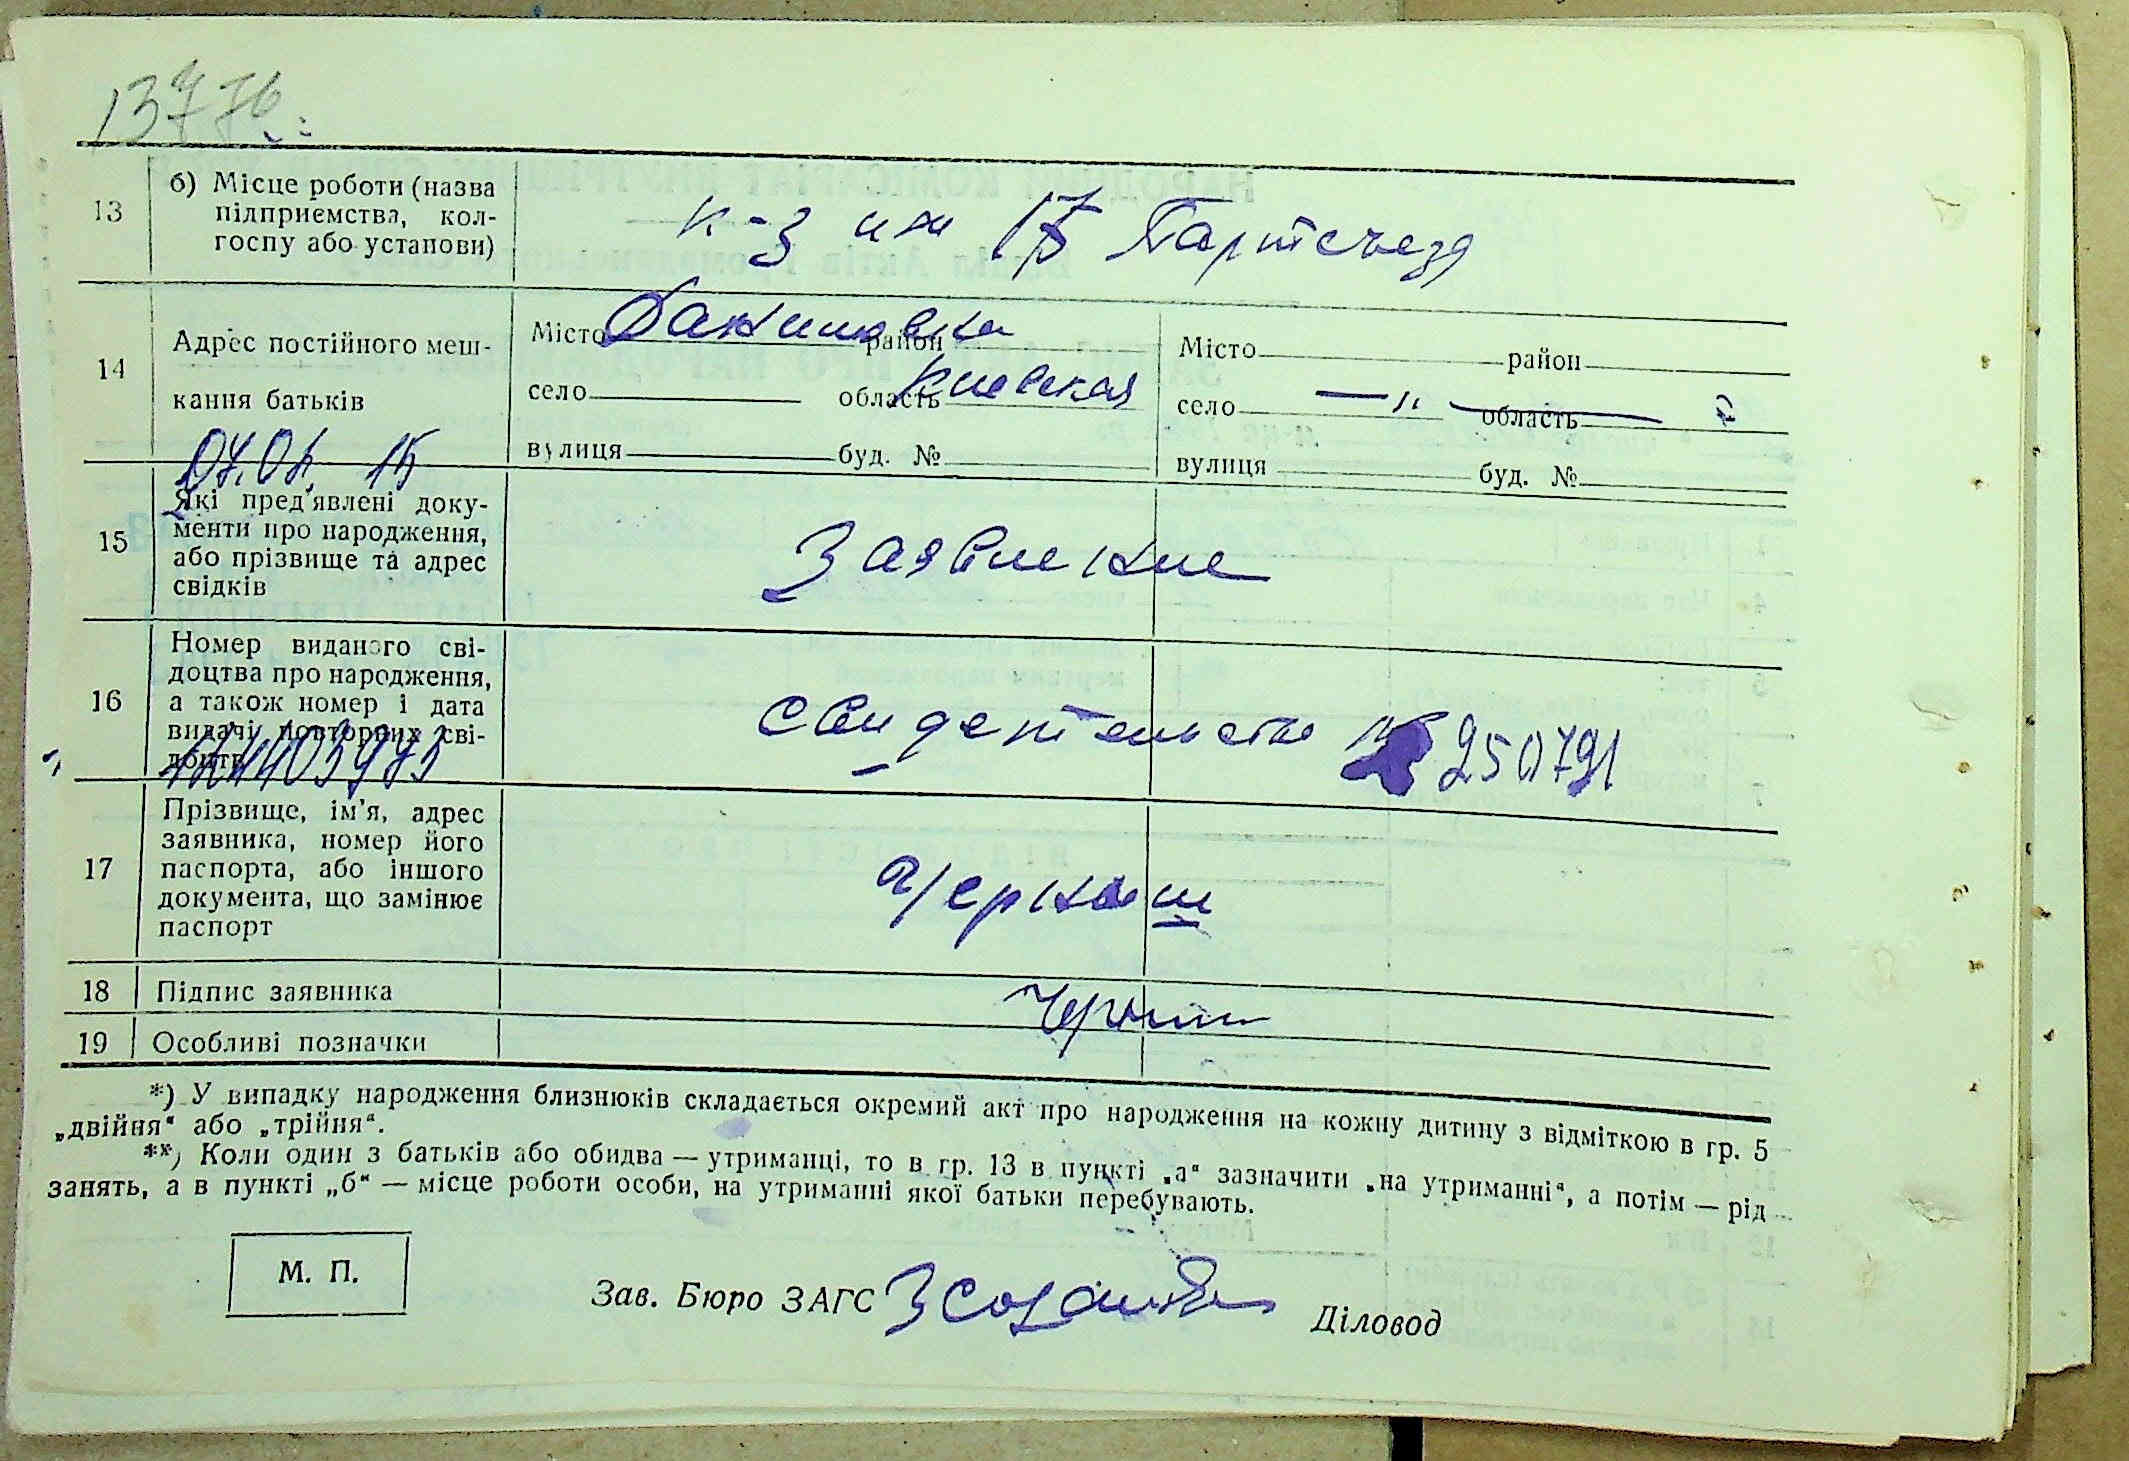 13
б) Місце роботи (назва
підприємства, кол-
госпу або установи)
к-з им 17 Партсъезд
14
Адрес постійного меш-
кання батьків
Місто район
село область Киевская
вулиця буд. №
Місто район
село — „ — область
вулиця буд. №
15
Які пред'явлені доку-
менти про народження,
або прізвище та адрес
свідків
Заявление
16
Номер виданого сві-
доцтва про народження,
а також номер і дата
видачі повторних сві-
доцтв
свидетельство № 250791
17
Прізвище, ім'я, адрес
заявника, номер його
паспорта, або іншого
документа, що замінює
паспорт
Черныш
18 Підпис заявника
Черныш
19 Особливі позначки
*) У випадку народження близнюків складається окремий акт про народження на кожну дитину з відміткою в гр. 5
„двійня“ або „трійня“.
**) Коли один з батьків або обидва — утриманці, то в гр. 13 в пункті „а“ зазначити „на утриманні“, а потім — рід
занять, а в пункті „б“ — місце роботи особи, на утриманні якої батьки перебувають.
М. П.
Зав. Бюро ЗАГС
Діловод